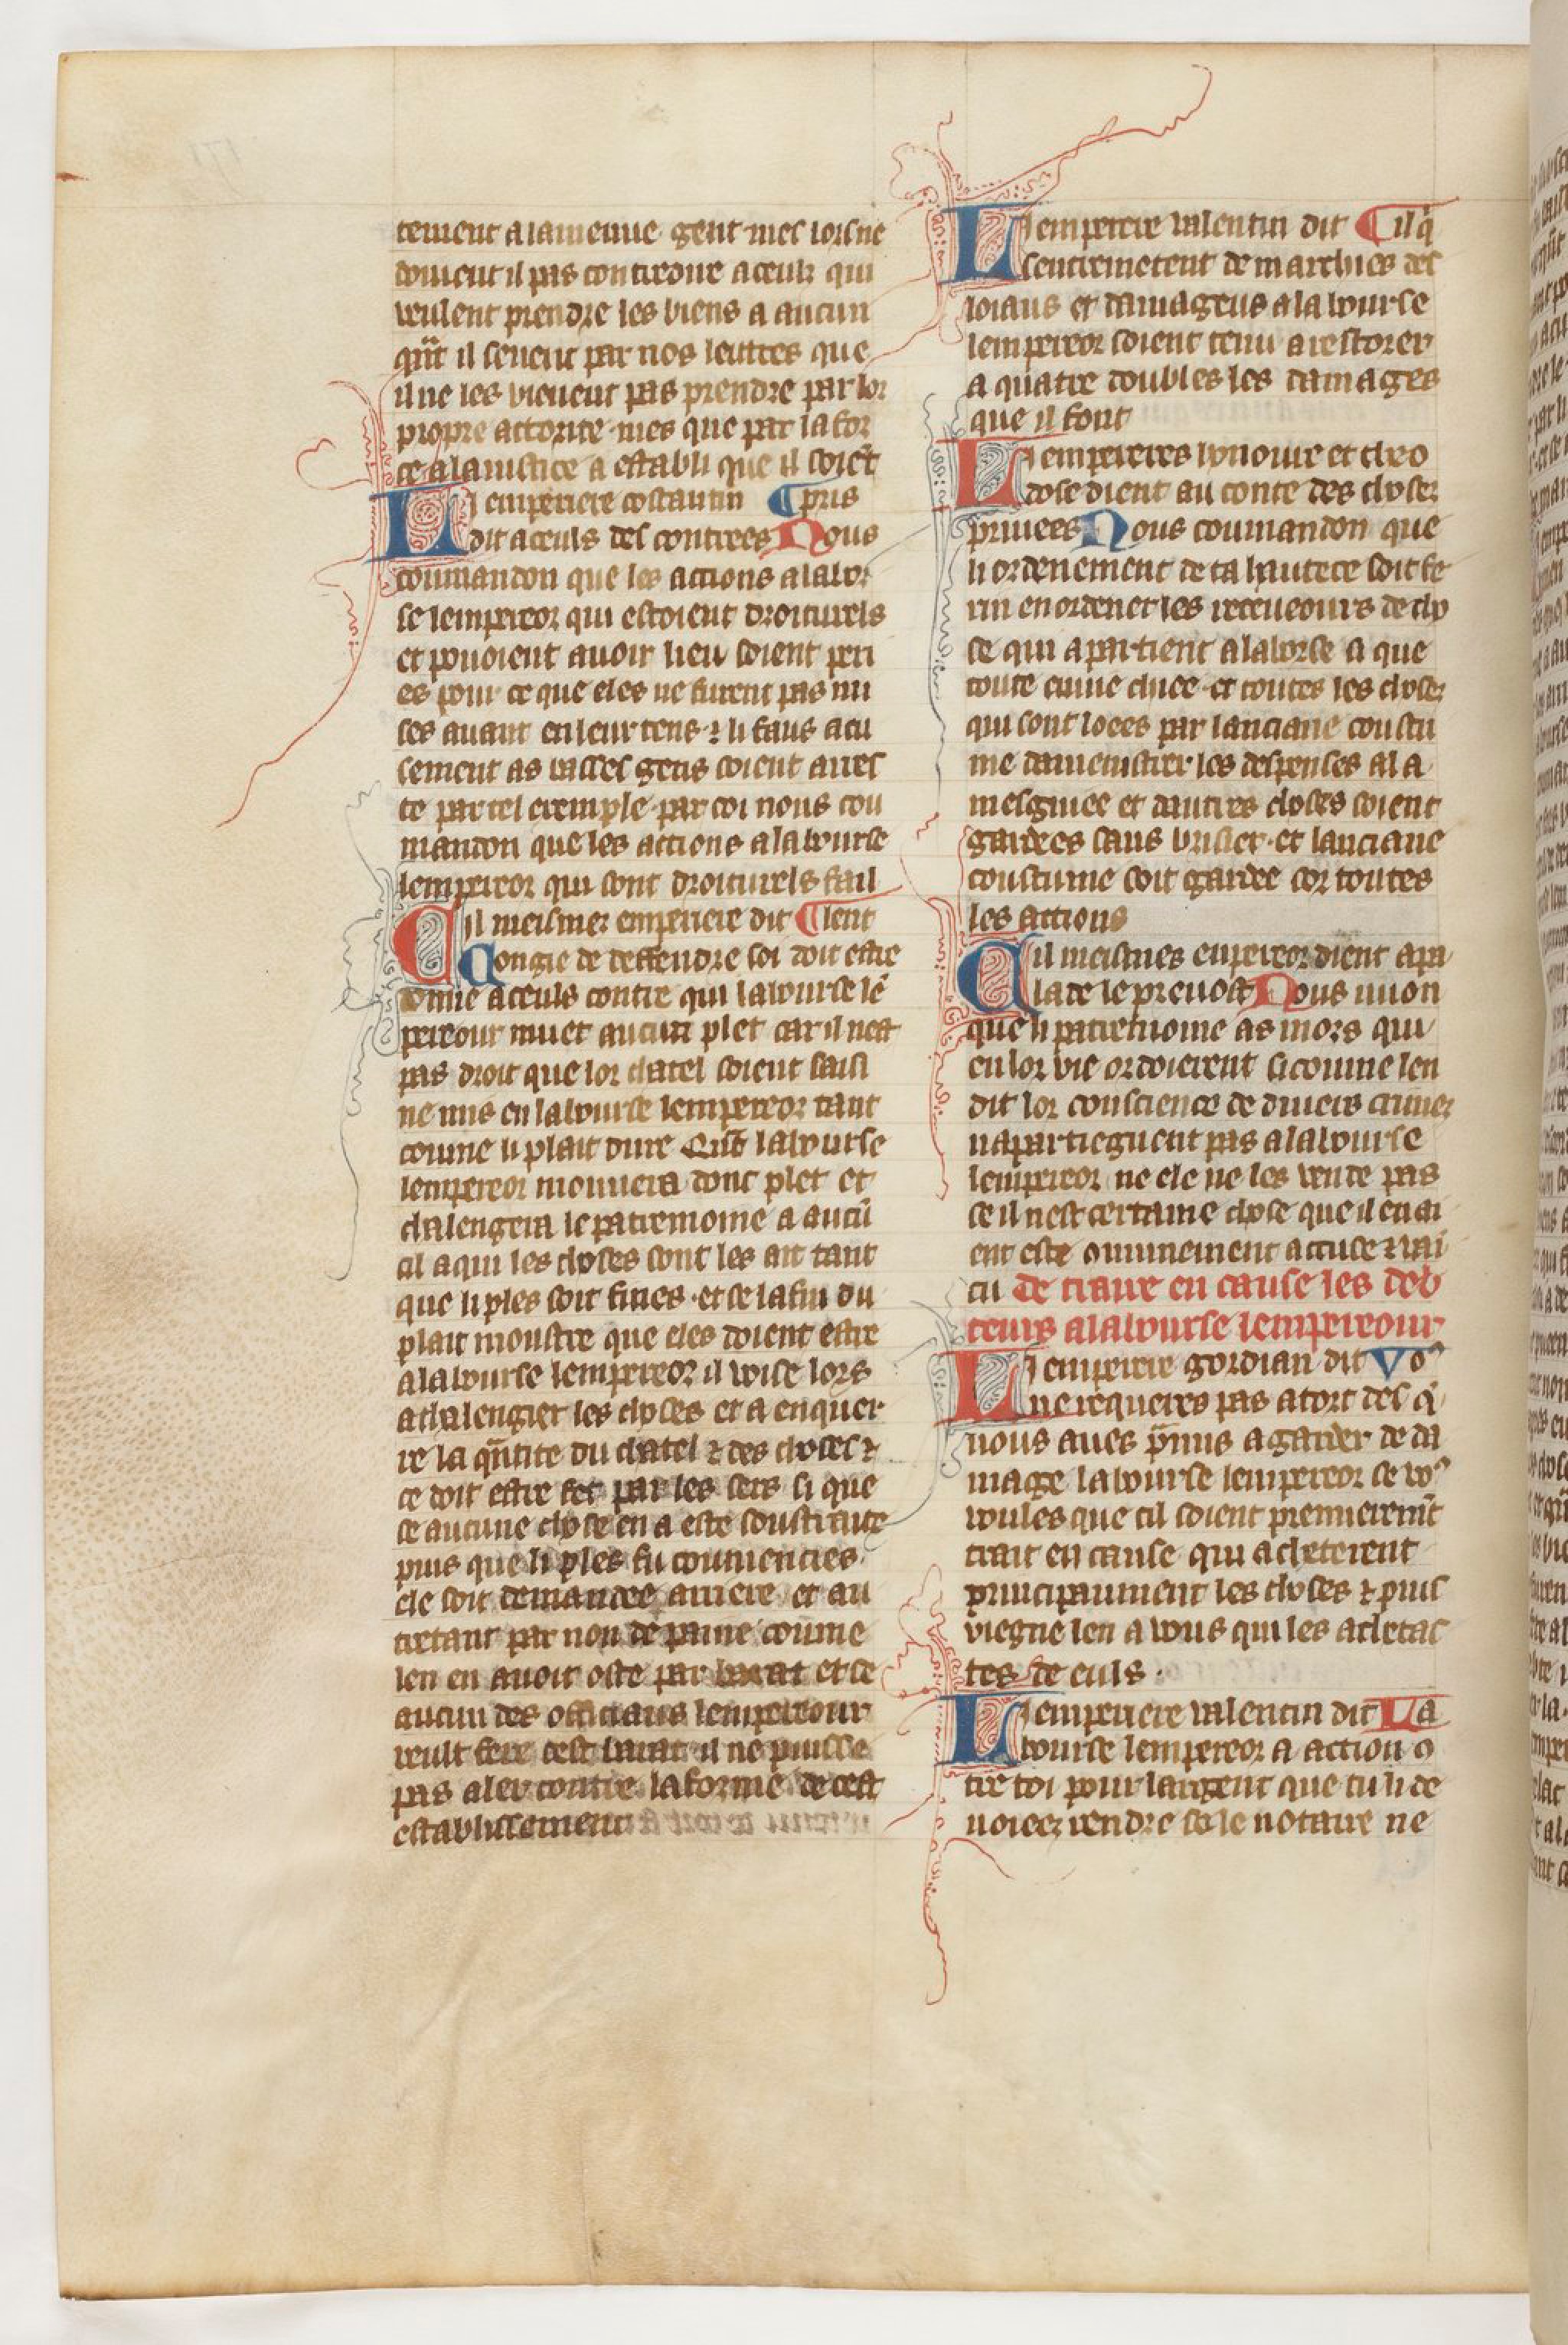 tement a la meime gent mes lors ne
doivent il pas contredire a ceulz qui
veulent prendre les biens a aucun
qñt il sevent par nos leittres que
il ne les vienent pas prendre par lor
propre actorite mes que par la for
ce a la iustice a establi que il soiēt
Li emperiere costantin ¶ pris
dit a ceuls des contrees Nous
coumandon que les actions a la bor
se lempereor qui estoient droiturels
et pouoient auoir lieu soient peri
es pour ce que eles ne furent pas mi
ses auant en leur tens ⁊ li faus acu
sement as basses gens soient arres
te par tel exemple par coi nous cou
mandon que les actions a la bourse
lempereor qui sont droiturels fail
Cil meismez emperiere dit ¶ lent
Congie de deffendre soi doit estre
donne a ceuls contre qui la bourse lē
pereour muet aucun plet car il nest
pas droit que lor chatel soient saisi
ne mis en la bourse lempereor tant
coume li plait dure Qñt la bourse
lempereor mouuera donc plet et
chalengera le patremoine a aucū
cil a qui les choses sont les ait tant
que li ples soit fines et se la fin du
plait moustre que eles doient estre
a la bourse lempereor il loise lors
a chalengier les choses et a enquer
re la qñtite du chatel ⁊ des choses ⁊
ce doit estre fet par les sers si que
se aucune chose en a este soustraite
puis que li ples fu coumencies
ele soit demandee arriere et au
tretant par non de paine coume
len en auoit oste par barat et se
aucun des officiaus lempereour
veult fere cest barat il ne puisse
pas aler contre la forme de cest
establissement
Li emperere valentin dit Cil q̄
sentremetent de marchies des
loiaus et damageus a la bourse
lempereor soient tenu a restorer
a quatre doubles les damages
que il font
Li empereres honoure et theo
dose dient au conte des chosez
priuees Nous coumandon que
li ordenement de ta hautece soit fe
rm en ordener les receueours de cho
se qui apartient a la borse si que
toute cuiue chiee et toutes les chosez
qui sont loees par lanciane coustu
me damenistrer les despenses a la
mesgniee et dautres choses soient
gardees sans brisier et lanciane
coustume soit gardee sor toutes
les actions
Cil meismes empereor dient a pa
lace le preuost Nous uuon
que li patremoine as mors qui
en lor vie ordoierent si coume len
dit lor conscience de diuers crimez
napartiegnent pas a la bourse
lempereor ne ele ne les vende pas
se il nest certaine chose que il en ai
ent este oumunement accuse ⁊ vai
cu de traire en cause les deb
teurs a la bourse lempereour
Li emperere gordian dit Voꝰ
ne requeres pas a tort des q̄
nous aues ꝓmis a garder de da
mage la bourse lempereor se voꝰ
voules que cil soient premieremēt
trait en cause qui acheterent
principaument les choses ⁊ puis
viegne len a vous qui les achetas
tes de euls
Li emperiere valentin dit La
bourse lempereor a action ꝯ
tre toi pour largent que tu li de
uoiez rendre se le notaire ne